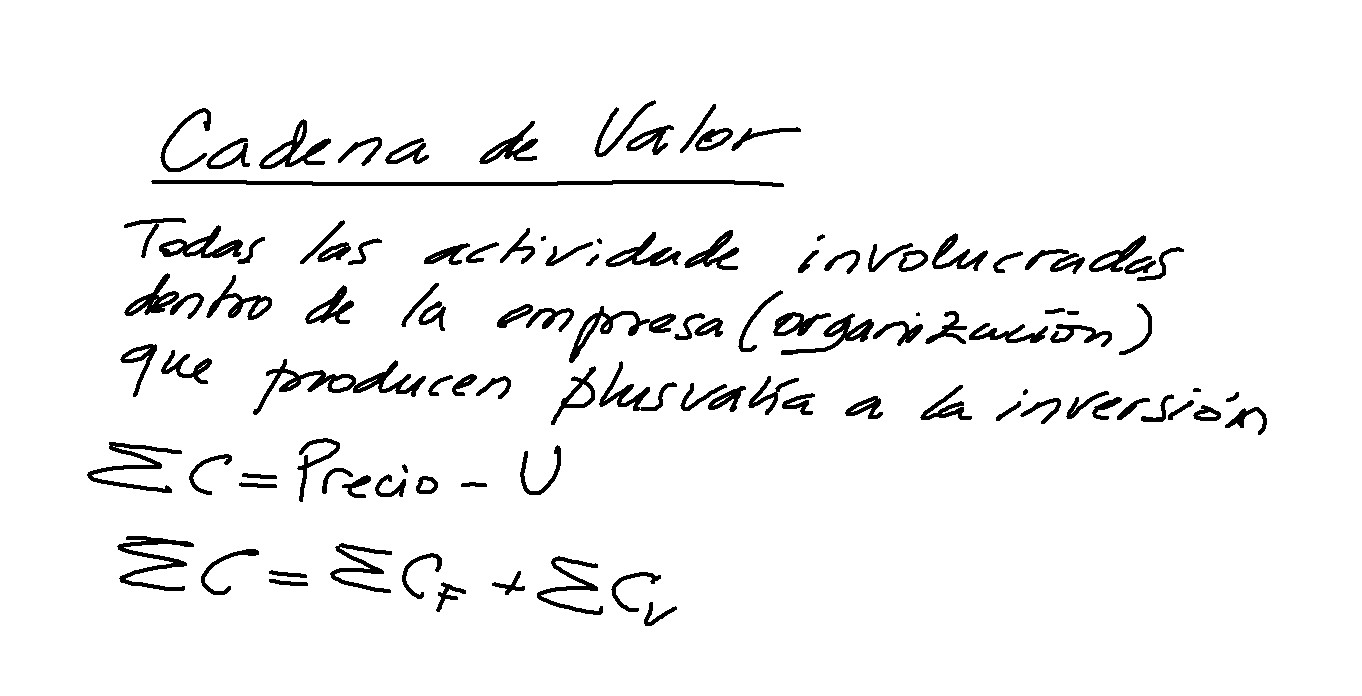 Cadena de Valor
Todas las actividade involucradas
dentro de la empresa (organización)
que producen plusvalía a la inversión
ΣC = Precio - U
ΣC = ΣC_F + ΣC_V